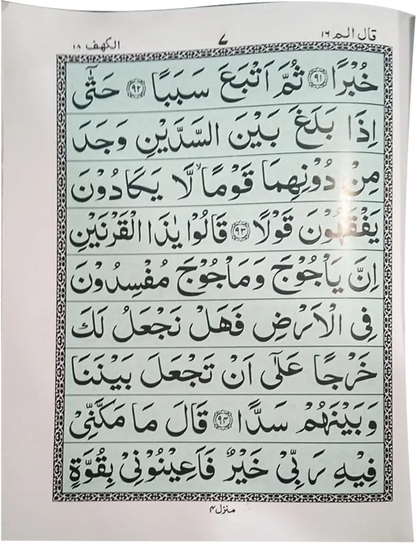 قال الم ١٦
٧
الكهف ١٨
خُبْرًا ﴿٩١﴾ ثُمَّ اَتْبَعَ سَبَبًا ﴿٩٢﴾ حَتّٰۤى
اِذَا بَلَغَ بَيْنَ السَّدَّيْنِ وَجَدَ
مِنْ دُوْنِهِمَا قَوْمًا ۙ لَّا يَكَادُوْنَ
يَفْقَهُوْنَ قَوْلًا ﴿٩٣﴾ قَالُوْا يٰذَا الْقَرْنَيْنِ
اِنَّ يَاْجُوْجَ وَمَاْجُوْجَ مُفْسِدُوْنَ
فِى الْاَرْضِ فَهَلْ نَجْعَلُ لَكَ
خَرْجًا عَلٰٓى اَنْ تَجْعَلَ بَيْنَنَا
وَبَيْنَهُمْ سَدًّا ﴿٩٤﴾ قَالَ مَا مَكَّنِّىْ
فِيْهِ رَبِّىْ خَيْرٌ فَاَعِيْنُوْنِىْ بِقُوَّةٍ
منزل ٤